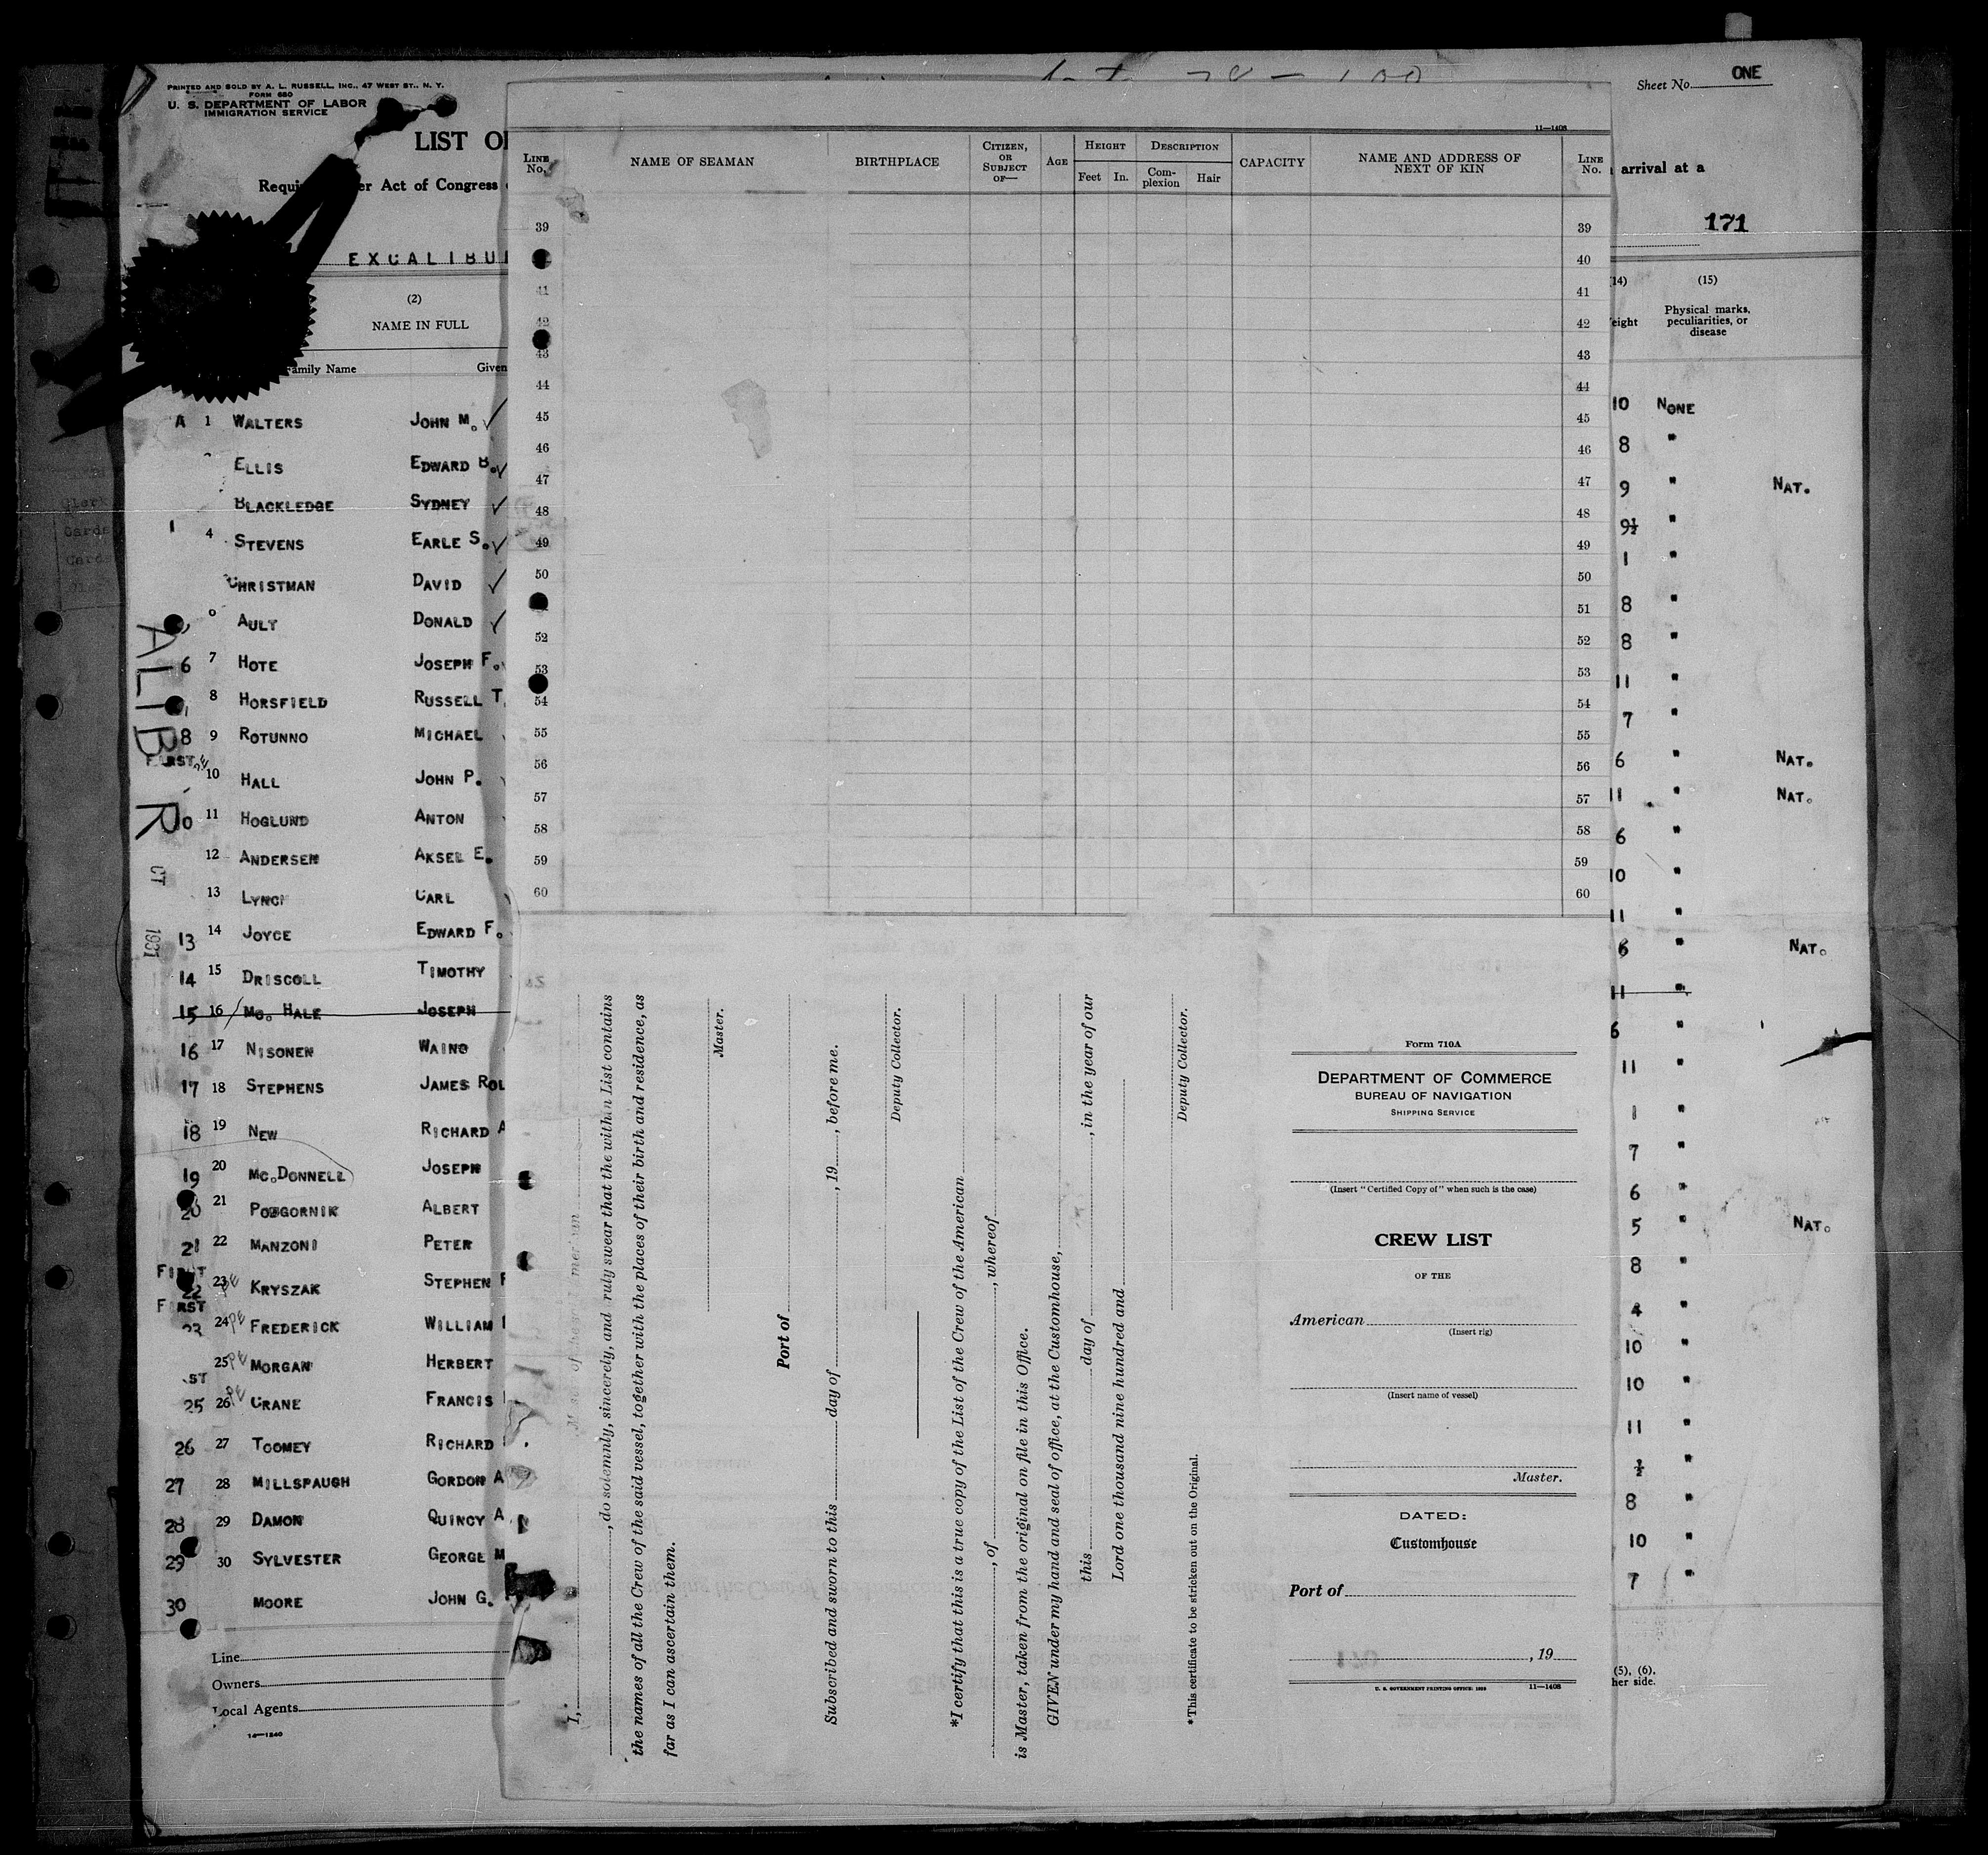 PRINTED AND SOLD BY A. L. RUSSELL, INC., 47 WEST ST., N. Y.
FORM 680
U. S. DEPARTMENT OF LABOR
IMMIGRATION SERVICE
Sheet No. ONE
LIST O
Requi er Act of Congress
arrival at a
171
EXCALIBU
(2)
NAME IN FULL
amily Name Given
(14) (15)
eight Physical marks, peculiarities, or disease
A 1 WALTERS JOHN M. ✓ 10 NONE
ELLIS EDWARD B. ✓ 8 "
BLACKLEDGE SYDNEY ✓ 9 " NAT.
1 4 STEVENS EARLE S. ✓ 9½ "
CHRISTMAN DAVID ✓ 1 "
AULT DONALD ✓ 8 "
6 7 HOTE JOSEPH F. 8 "
8 HORSFIELD RUSSELL T. 11 "
8 9 ROTUNNO MICHAEL 7 "
FIRST PE 10 HALL JOHN P. 6 " NAT.
10 11 HOGLUND ANTON 11 " NAT.
12 ANDERSEN AKSEL E. 6 "
13 LYNCH CARL 10 "
13 14 JOYCE EDWARD F. 11 "
14 15 DRISCOLL TIMOTHY 6 " NAT.
15 16 MC. HALE JOSEPH 11 "
16 17 NISONEN WAINO 6 "
17 18 STEPHENS JAMES ROL 11 "
18 19 NEW RICHARD A 1 "
19 20 MC.DONNELL JOSEPH 7 "
20 21 PODGORNIK ALBERT 6 "
21 22 MANZONI PETER 5 " NAT.
FIRST
22 23 PE KRYSZAK STEPHEN 8 "
FIRST
23 24 PE FREDERICK WILLIAM 4 "
25 PE MORGAN HERBERT 10 "
ST
25 26 PE CRANE FRANCIS 10 "
26 27 TOOMEY RICHARD 11 "
27 28 MILLSPAUGH GORDON A ½ "
28 29 DAMON QUINCY A. 8 "
29 30 SYLVESTER GEORGE M 10 "
30 MOORE JOHN G. 7 "
ALIB R
CT
1931
Line
Owners
Local Agents
14—1240
(5), (6),
her side.
11—1408
LINE No. NAME OF SEAMAN BIRTHPLACE CITIZEN, OR SUBJECT OF— AGE HEIGHT Feet In. DESCRIPTION Com-plexion Hair CAPACITY NAME AND ADDRESS OF NEXT OF KIN LINE No.
39 39
40
41 41
42 42
43 43
44 44
45 45
46 46
47 47
48 48
49 49
50 50
51
52 52
53 53
54 54
55 55
56 56
57 57
58 58
59 59
60 60
I,
, do solemnly, sincerely, and truly swear that the within List contains
the names of all the Crew of the said vessel, together with the places of their birth and residence, as
far as I can ascertain them.
Master.
Port of
Subscribed and sworn to this day of , 19 , before me.
Deputy Collector.
*I certify that this is a true copy of the List of the Crew of the American
, of , whereof
is Master, taken from the original on file in this Office.
GIVEN under my hand and seal of office, at the Customhouse,
this day of , in the year of our
Lord one thousand nine hundred and
Deputy Collector.
*This certificate to be stricken out on the Original.
Form 710A
DEPARTMENT OF COMMERCE
BUREAU OF NAVIGATION
SHIPPING SERVICE
(Insert "Certified Copy of" when such is the case)
CREW LIST
OF THE
American
(Insert rig)
(Insert name of vessel)
Master.
DATED:
Customhouse
Port of
, 19
U. S. GOVERNMENT PRINTING OFFICE: 11—1408